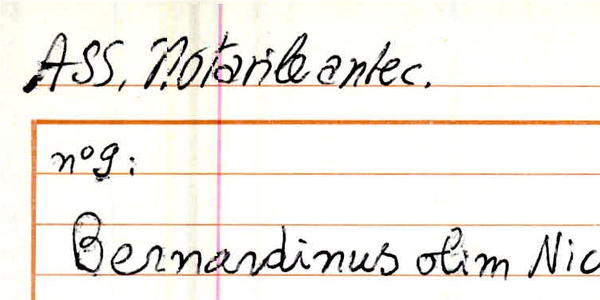 ASS. Notarile antec.
n° 9:
Bernardinus olim Nic